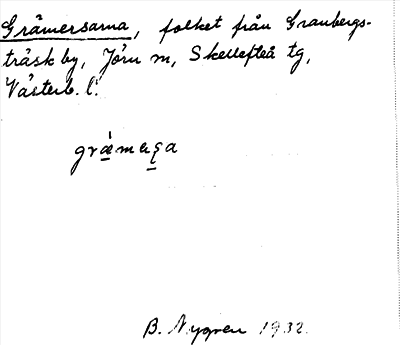 Gråmersarna, folket från Granbergs-
träsk by, Jörn m, Skellefteå tg,
Västerb. l.
B. Nygren 1932.